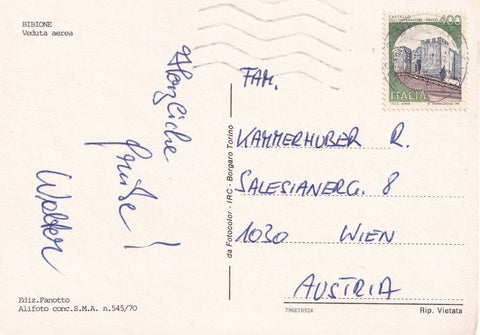 BIBIONE
Veduta aerea
Herzliche
Grüße!
Walter
Ediz.Fanotto
Alifoto conc.S.M.A. n.545/70
da Fotocolor - IRC - Borgaro Torino
CASTELLO
400
ITALIA
FAM.
KAMMERHUBER R.
SALESIANERG. 8
1030 WIEN
AUSTRIA
796E18924
Rip. Vietata